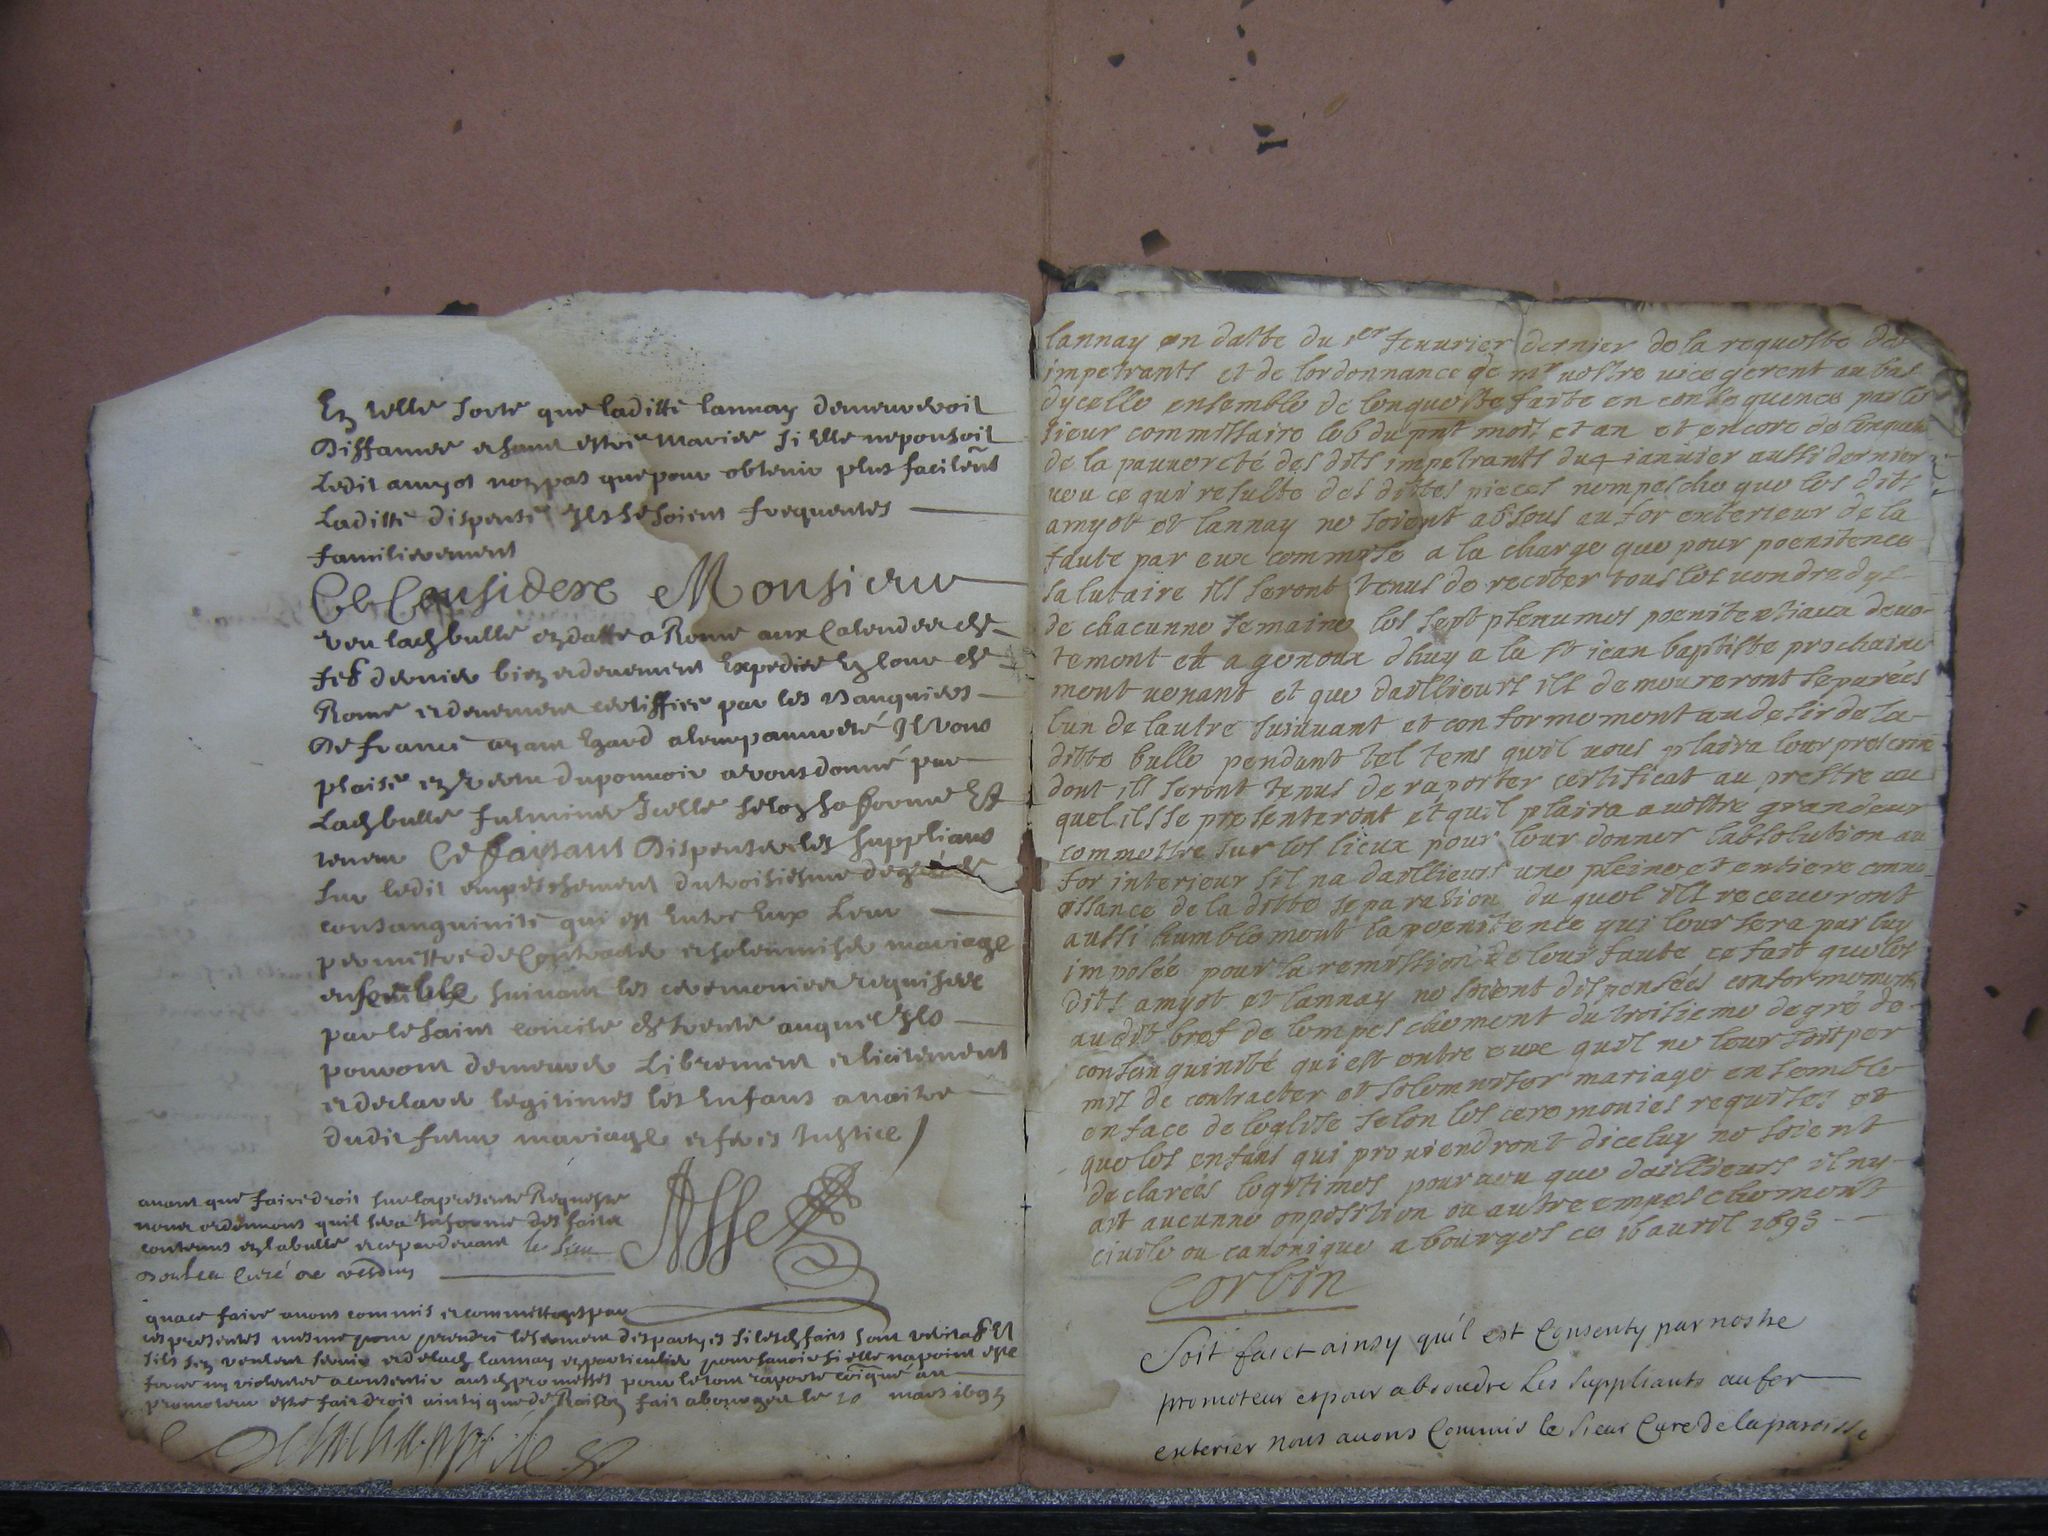 En telle sorte que laditte lannay demeureroit
Diffamée et sans estre Mariée si elle nepousoit
Ledit amyot non pas que pour obtenir plus facilemt
Laditte dispense Ils se soient frequentes
familierement
Ce Consideré Monsieur
veu lad bulle en datte a Rome aux Calendes de
feb dernier bien et deuement Expediée En Cour de
Rome et deuement certiffiée par les Banquiers
De france ayant Egard a leur pauvreté Il vous
plaise en vertu du pouvoir a vous donné par
Lad bulle fulminer Icelle selon sa forme Et
teneur Ce faisant Dispenser les suppliants
Sur ledit empeschement du troisiesme degré de
consanguinité qui est Entre Eux Leur
permettre de Contracter et solemniser mariage
ensemble suivant les ceremonies requises
par le saint concile de trente auquel Ils
pouront demeurer Librement et licitement
et declarer legitimes les Enfans a naitre
dudit futur mariage et feres Justice
avant que faire droit sur la presente Requeste
nous ordonnons quil sera Informé des faits
contenus en la bulle et cependant le Sieur
curé de
quace faire avons commis et commettons par
ces presentes mesme pour prendre le serment des partyes si lesd faits sont veritables
sils sen veulent servir et de lad lannay en particulier pour savoir si elle na point esté
forcée ny violentée a consentir ausd promesses pour le tout raporté coīqué au
promoteur estre fait droit ainsy que de Raison fait a bourges le 20 mars 1693
lannay en datte du 1er feuurier dernier de la requeste des
impetrants et de lordonnance de mr vostre vicegerent au bas
dycelle ensemble de lenqueste faite en consequence par le
sieur commissaire le 6 du pnt mois et an et encore de lenqueste
de la pauureté des dits impetrants du 4 ianuier aussi dernier
ueu ce qui resulte des dittes pieces nempesche que les dits
amyot et lannay ne soient absous au for exterieur de la
faute par eux commise a la charge que pour poenitence
salutaire ils seront tenus de reciter tous les uendredys
de chacunne semaine les sept pseaumes poenitentiaux deuo-
tement et a genoux dhuy a la st iean baptiste prochaine
ment uenant et que daillieurs ils demoureront separées
lun de lautre suiuant et conformement au desir de la
ditte bulle pendant tel tems quil vous plaira leur prescrire
dont ils seront tenus de raporter certificat au prestre au
quel ils se presenteront et quil plaira a vostre grandeur
commettre sur les lieux pour leur donner labsolution au
for interieur sil na daillieurs une pleine et entiere conno
issance de la ditte separation du quel ils receueront
aussi humblement la poenitence qui leur sera par luy
imposée pour la remission de leur faute ce fait que les
dits amyot et lannay ne soient dispensées conformement
au dit bref de lempeschement du troisieme degré de
consanguinité qui est entre eux quil ne leur soit per
mis de contracter et solemniser mariage ensemble
en face de leglise selon les ceremonies requises et
que les enfans qui prouiendront diceluy ne soient
declarées legitimes pourueu que daillieurs il ny
ait aucunne opposition ou autre empeschement
ciuile ou canonique a bourges ce 16 auril 1693
Corbin
Soit faict ainsy quil est Consenty par nostre
promoteur et pour absoudre Les suppliants au for
exterier nous auons Commis le sieur Cure de la paroisse